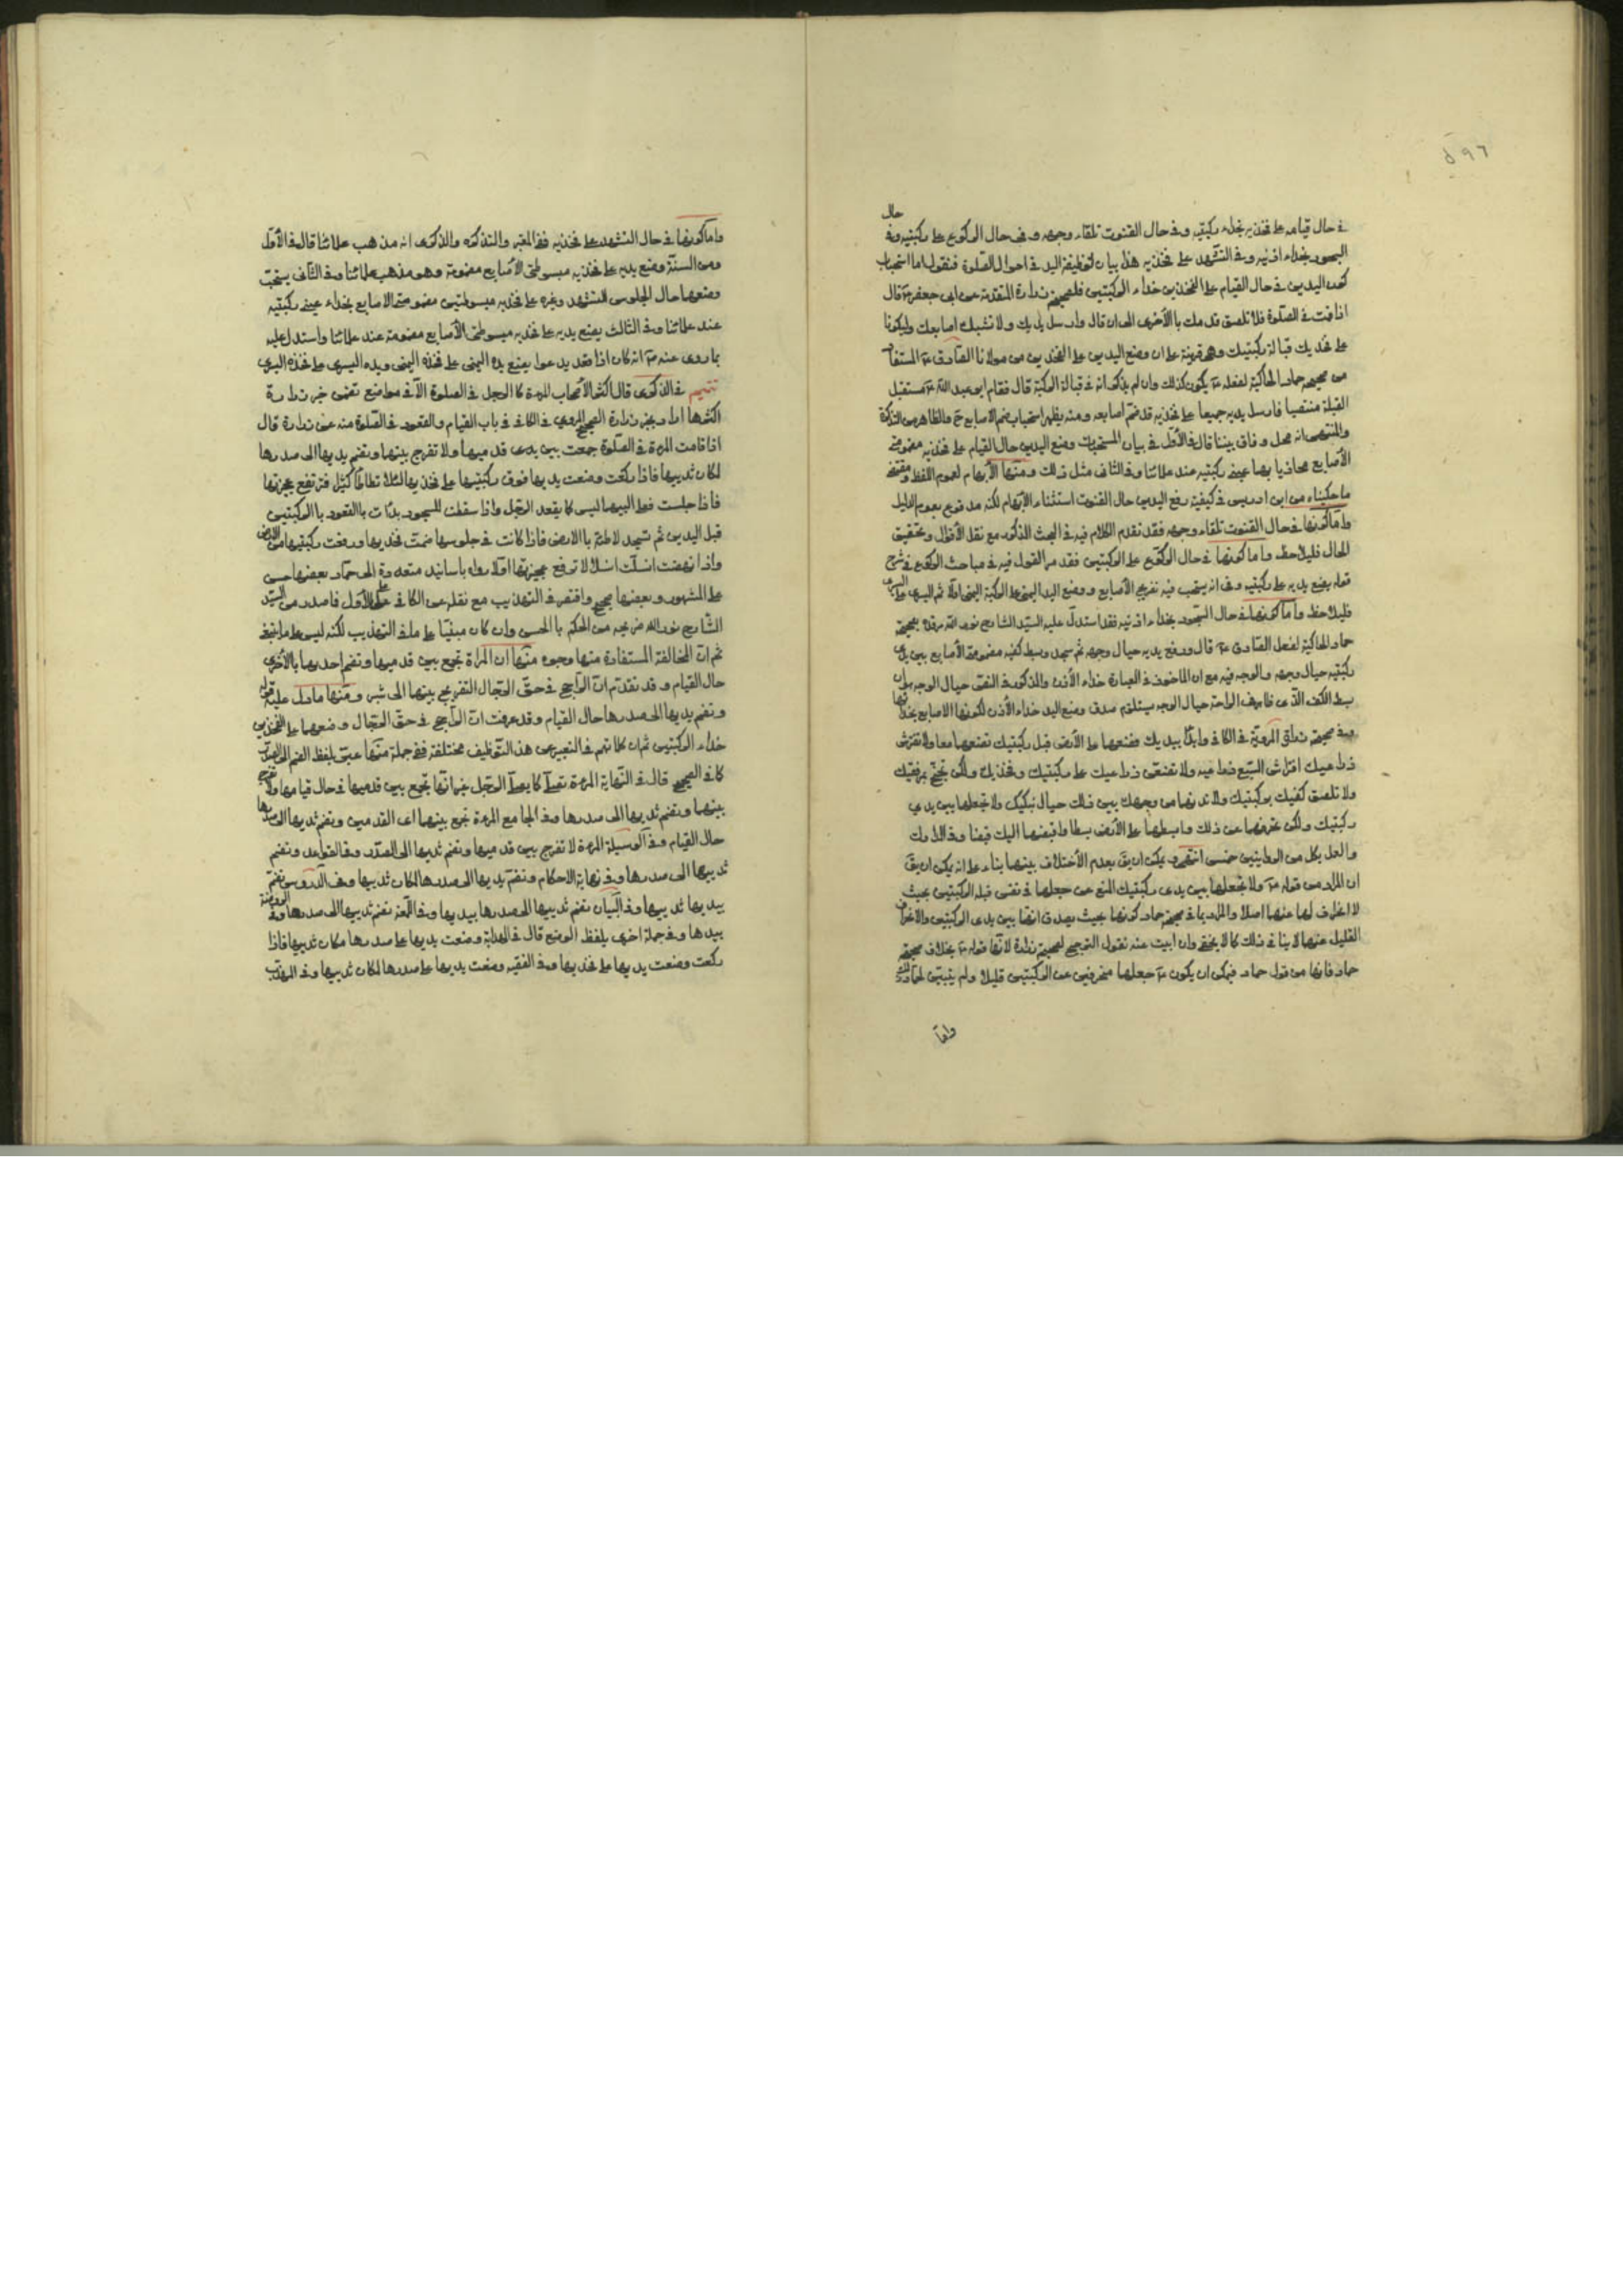 ٥٩٦
حال
في حال قيامه على فخذيه بحذاء ركبتيه وفي حال القنوت تلقاء وجهه وفي حال الركوع على ركبتيه وفي
السجود بحذاء اذنيه وفي التشهد على فخذيه هذا بيان لوظيفة اليد في احوال الصلوة فنقول اما استحباب
كون اليدين في حال القيام على الفخذين حذاء الركبتين فلصحيحة زرارة المتقدمة عن ابي جعفر ع قال
اذا قمت في الصلوة فلا تلصق قدمك بالأخرى الى ان قال وارسل يديك ولا تشبك اصابعك وليكونا
على فخذيك قبالة ركبتيك وهي قرينة على ان وضع اليدين على الفخذين من مولانا الصادق ع المستفاد
من صحيحة حماد الحاكية لفعله ع يكون كذلك وان لم يذكر انه في قبالة الركبة قال فقام ابو عبد الله ع مستقبل
القبلة منتصبا فارسل يديه جميعا على فخذيه قد ضم اصابعه ومنه يظهر استحباب ضم الاصابع ح والظاهر من التذكرة
والمنتهى انه محل وفاق بيننا قال في الأول في بيان المستحبات وضع اليدين حال القيام على فخذيه مضمومتي
الأصابع محاذيا بهما عيني ركبتيه عند علمائنا وفي الثاني مثل ذلك ومنها الأبهام لعموم اللفظ ومقتضى
ما حكيناه من ابن ادريس في كيفية رفع اليدين حال القنوت استثناء الأبهام لكنه مدفوع بعموم الدليل
واما كونها في حال القنوت تلقاء وجهه فقد تقدم الكلام فيه في البحث المذكور مع نقل الأقوال وتحقيق
الحال فليلاحظ واما كونها في حال الركوع على الركبتين فقد مر القول فيه في مباحث الركوع في شرح
قوله يضع يديه على ركبتيه وفي انه يستحب فيه تفريج الأصابع ووضع اليد اليمنى على الركبة اليمنى اولا ثم اليسرى على اليسرى
فليلاحظ واما كونها في حال السجود بحذاء اذنيه فقد استدل عليه السيد الشارح نور الله مرقده بصحيحة
حماد الحاكية لفعل الصادق ع قال ورفع يديه حيال وجهه ثم سجد وبسط كفيه مضمومة الأصابع بين يدي
ركبتيه حيال وجهه والوجه فيه مع ان المأخوذ في العبارة حذاء الأذن والمذكور في النص حيال الوجه هو ان
بسط الكف الذي حيال الوجه يستلزم صدق وضع اليد حذاء الأذن لكونها الاصابع بحذائها
وفي صحيحة زرارة المروية في الكافي وابدأ بيديك فضعهما على الأرض قبل ركبتيك تضعهما معا ولا تفترش
ذراعيك افتراش السبع ذراعيه ولا تضعن ذراعيك على ركبتيك وفخذيك ولكن تجنح بمرفقيك
ولا تلصق كفيك بركبتيك ولا تدنهما من وجهك بين ذلك حيال منكبيك ولا تجعلهما بين يدي
ركبتيك ولكن تحرفهما عن ذلك وابسطهما على الأرض بسطا واقبضهما اليك قبضا وفي المدارك
والعمل بكل من الروايتين حسن انتهى ويمكن ان يق بعدم الأختلاف بينهما بناء على انه يمكن ان يق
ان المراد من قوله ع ولا تجعلهما بين يدي ركبتيك المنع عن جعلهما في نفس قبلة الركبتين بحيث
لا انحراف لهما عنها اصلا والمراد بما في صحيحة حماد كونهما بحيث يصدق انهما بين يدي الركبتين والانحراف
القليل عنهما لا ينافي ذلك كما لا يخفى وان ابيت عنه نقول الترجيح لصحيحة زرارة لانها قوله ع بخلاف صحيحة
حماد فانها من قول حماد فيمكن ان يكون ع جعلهما منحرفين عن الركبتين قليلا ولم يتبين لحماد ذلك
واما
واما كونها في حال التشهد على فخذيه ففي المعتبر والتذكرة والذكرى انه مذهب علمائنا قال في الأول
ومن السنة وضع يديه على فخذيه مبسوطتي الأصابع مضمومة وهو مذهب علمائنا وفي الثاني يستحب
وضعهما حال الجلوس للتشهد وغيره على فخذيه مبسوطتين مضمومتي الاصابع بحذاء عيني ركبتيه
عند علمائنا وفي الثالث يضع يديه على فخذيه مبسوطتي الأصابع مضمومة عند علمائنا واستدل عليه
بما روي عنه ع انه كان اذا قعد يدعوا يضع يده اليمنى على فخذه اليمنى ويده اليسرى على فخذه اليسرى
تتميم في الذكرى قال اكثر الأصحاب المرءة كالرجل في الصلوة الآ في مواضع تضمن خبر زرارة
اكثرها اراد بخبر زرارة الصحيح المروي في الكافي في باب القيام والقعود في الصلوة منه عن زرارة قال
اذا قامت المرءة في الصلوة جمعت بين يدي قدميها ولا تفرج بينهما وتضم يديها الى صدرها
لمكان ثدييها فاذا ركعت وضعت يديها فوق ركبتيها على فخذيها لئلا تطأطأ كثيرا فترتفع عجيزتها
فاذا جلست فعلى اليتيها ليس كما يقعد الرجل واذا سقطت للسجود بدأت بالقعود بالركبتين
قبل اليدين ثم تسجد لاطئة بالارض فاذا كانت في جلوسها ضمت فخذيها ورفعت ركبتيها من الارض
واذا نهضت انسلت انسلالا لا ترفع عجيزتها اولا رواه بأسانيد متعددة الى حماد بعضها حسن
على المشهور وبعضها صحيح واقتصر في التهذيب مع نقله عن الكافي على الأول فما صدر من السيد
الشارح نور الله ضريحه من الحكم بالحسن وان كان مبنيا على ما في التهذيب لكنه ليس على ما ينبغي
ثم ان المخالفة المستفادة منها وجوه منها ان المرأة تجمع بين قدميها وتضم احديهما بالأخرى
حال القيام وقد تقدم ان الراجح في حق الرجال التفريج بينهما الى شبر ومنها ما دل عليه قوله
وتضم يديها الى صدرها حال القيام وقد عرفت ان الراجح في حق الرجال وضعهما على الفخذين
حذاء الركبتين ثم ان كلماتهم في التعبير عن هذا التوظيف مختلفة ففي جملة منها عبر بلفظ الضم الى الصدر
كما في الصحيح قال في النهاية المرءة تصلي كما يصلي الرجل غير انها تجمع بين قدميها في حال قيامها ولا تفرج
بينهما وتضم ثدييها الى صدرها وفي الجامع المرءة تجمع بينهما اي القدمين وتضم ثدييها الى صدرها
حال القيام وفي الوسيلة المرءة لا تفرج بين قدميها وتضم ثدييها الى الصدر وفي القواعد وتضم
ثدييها الى صدرها وفي نهاية الاحكام وتضم يديها الى صدرها لمكان ثدييها وفي الدروس تضم
بيديها ثدييها وفي البيان تضم ثدييها الى صدرها بيديها وفي اللمعة تضم ثدييها الى صدرها وفي الروضة
بيدها وفي جملة اخرى بلفظ الوضع قال في الهداية وضعت يديها على صدرها مكان ثدييها فاذا
ركعت وضعت يديها على فخذيها وفي الفقيه وضعت يديها على صدرها لمكان ثدييها وفي المهذب